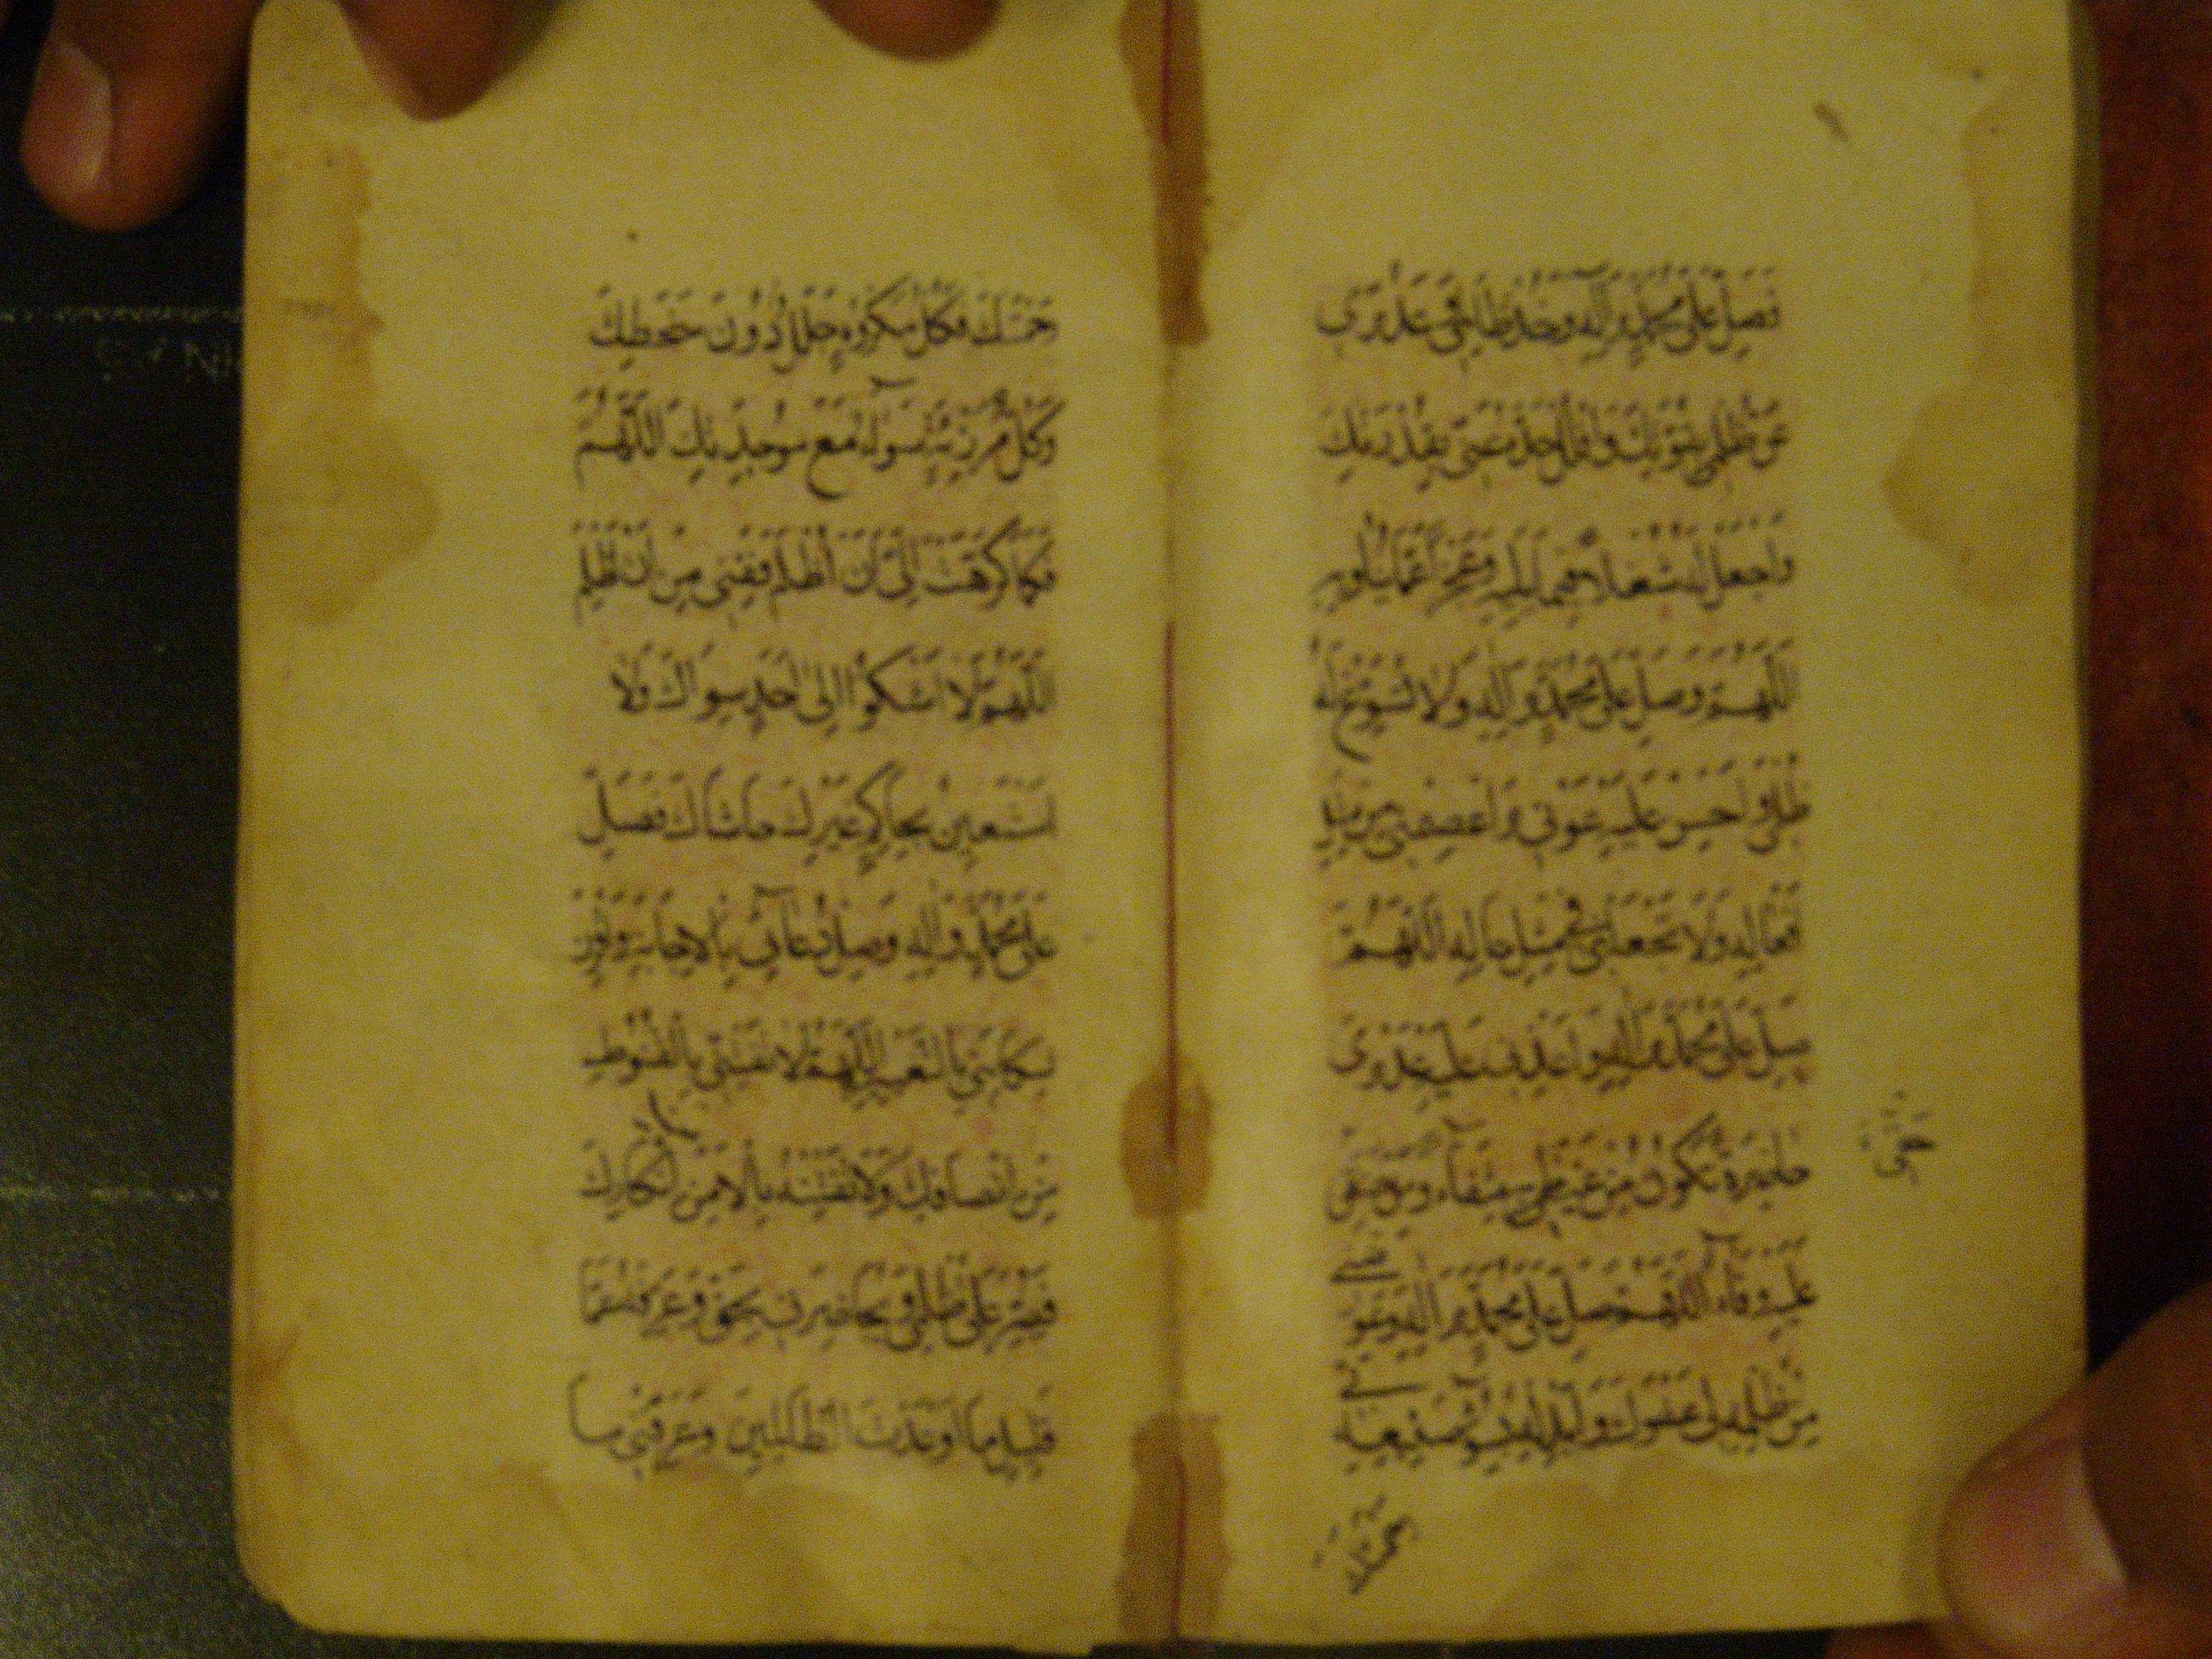 فَصَلِّ عَلَى مُحَمَّدٍ وَآلِهِ وَخُذْ ظَالِمِي وَعَدُوِّي
عَنْ ظُلْمِي بِقُوَّتِكَ وَافْلُلْ حَدَّهُ عَنِّي بِقُدْرَتِكَ
وَاجْعَلْ لَهُ شُغْلًا فِيمَا يَلِيهِ وَعَجْزًا عَمَّا يُنَاوِيهِ
اللَّهُمَّ وَصَلِّ عَلَى مُحَمَّدٍ وَآلِهِ وَلَا تُسَوِّغْ لَهُ
ظُلْمِي وَأَحْسِنْ عَلَيْهِ عَوْنِي وَاعْصِمْنِي مِنْ مِثْلِ
أَفْعَالِهِ وَلَا تَجْعَلْنِي فِي مِثْلِ حَالِهِ اللَّهُمَّ
صَلِّ عَلَى مُحَمَّدٍ وَآلِهِ وَأَعْدِنِي عَلَيْهِ عَدْوَى
حَاضِرَةً تَكُونُ مِنْ غَيْظِي بِهِ شِفَاءً وَمِنْ حَنَقِي
حَنَقِي
عَلَيْهِ وَفَاءً اللَّهُمَّ صَلِّ عَلَى مُحَمَّدٍ وَآلِهِ وَعَوِّضْنِي
مِنْ ظُلْمِهِ لِي عَفْوَكَ وَأَبْدِلْنِي بِسُوءِ صَنِيعِهِ
رَحْمَتَكَ فَكُلُّ مَكْرُوهٍ جَلَلٌ دُونَ سَخَطِكَ
وَكُلُّ مُرْزِئَةٍ سَوَاءٌ مَعَ مَوْجِدَتِكَ اللَّهُمَّ
فَكَمَا كَرَّهْتَ إِلَيَّ أَنْ أُظْلَمَ فَقِنِي مِنْ أَنْ أَظْلِمَ
اللَّهُمَّ لَا أَشْكُوا إِلَى أَحَدٍ سِوَاكَ وَلَا
أَسْتَعِينُ بِحَاكِمٍ غَيْرِكَ حَاشَاكَ فَصَلِّ
عَلَى مُحَمَّدٍ وَآلِهِ وَصِلْ دُعَائِي بِالْإِجَابَةِ وَاقْرِنْ
شِكَايَتِي بِالتَّغْيِيرِ اللَّهُمَّ لَا تَفْتِنِّي بِالْقُنُوطِ
مِنْ إِنْصَافِكَ وَلَا تَفْتِنْهُ بِالْأَمْنِ مِنْ إِنْكَارِكَ
فَيُصِرَّ عَلَى ظُلْمِي وَيُحَاضِرَنِي بِحَقِّي وَعَرِّفْهُ عَمَّا
قَلِيلٍ مَا أَوْعَدْتَ الظَّالِمِينَ وَعَرِّفْنِي مَا